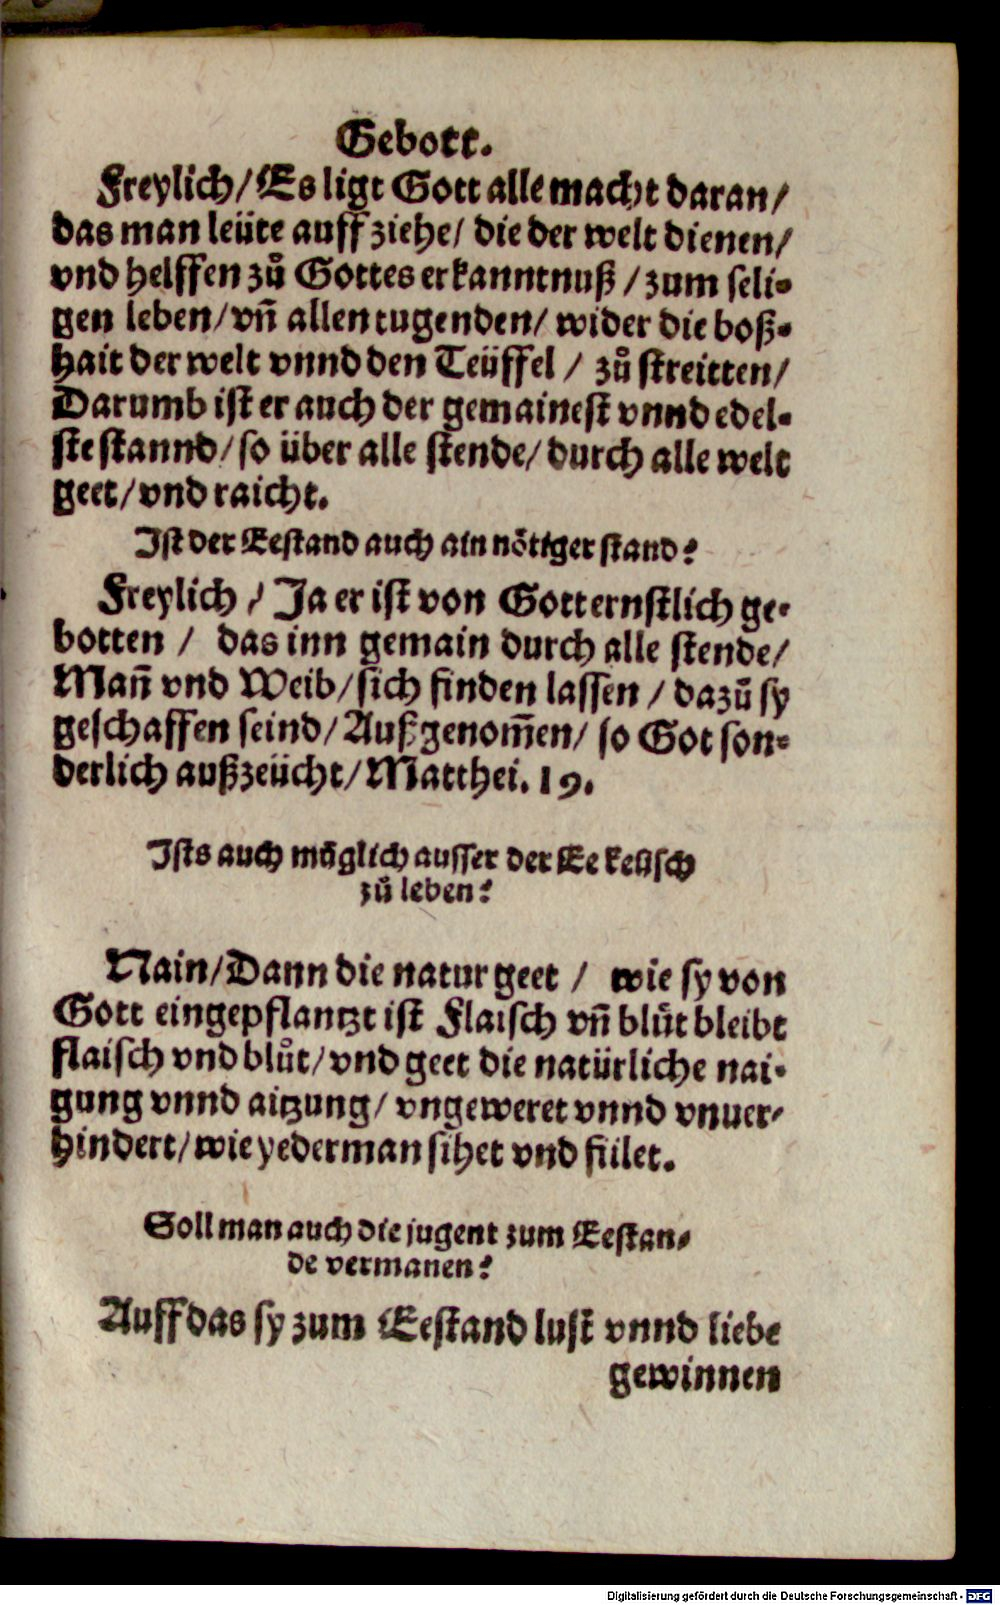 Gebott.
Freylich/ Es ligt Gott alle macht daran/
das man leüte auff ziehe/ die der welt dienen/
vnd helffen zů Gottes erkanntnuß / zum seli-
gen leben/ vñ allen tugenden/ wider die boß-
hait der welt vnnd den Teüffel / zů streitten/
Darumb ist er auch der gemainest vnnd edel-
ste stannd/ so über alle stende/ durch alle welt
geet/ vnd raicht.
Ist der Eestand auch ain nöttger stand?
Freylich / Ja er ist von Gott ernstlich ge-
botten / das inn gemain durch alle stende/
Mañ vnd Weib/ sich finden lassen / dazů sy
geschaffen seind/ Außgenom̃en/ so Got son-
derlich außzeücht/ Matthei. 19.
Ists auch mäglich ausser der Ee keüsch
zů leben?
Nain/ Dann die natur geet / wie sy von
Gott eingepflantzt ist Flaisch vñ blůt bleibt
flaisch vnd blůt/ vnd geet die natürliche nai-
gung vnnd aitzung/ vngeweret vnnd vnuer-
hindert/ wie yederman sihet vnd fület.
Soll man auch die jugent zum Eestan-
de vermanen?
Auff das sy zum Eestand lust vnnd liebe
gewinnen
Digitalisierung gefördert durch die Deutsche Forschungsgemeinschaft - DFG